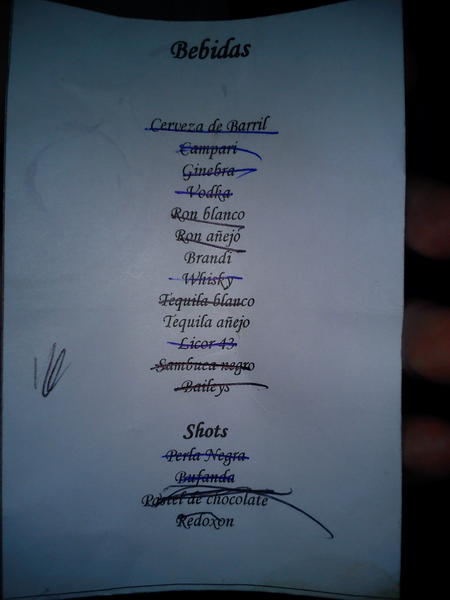 Bebidas
Cerveza de Barril
Campari
Ginebra
Vodka
Ron blanco
Ron añejo
Brandi
Whisky
Tequila blanco
Tequila añejo
Licor 43
Sambuca negro
Baileys
Shots
Perla Negra
Bufanda
Pastel de chocolate
Redoxon